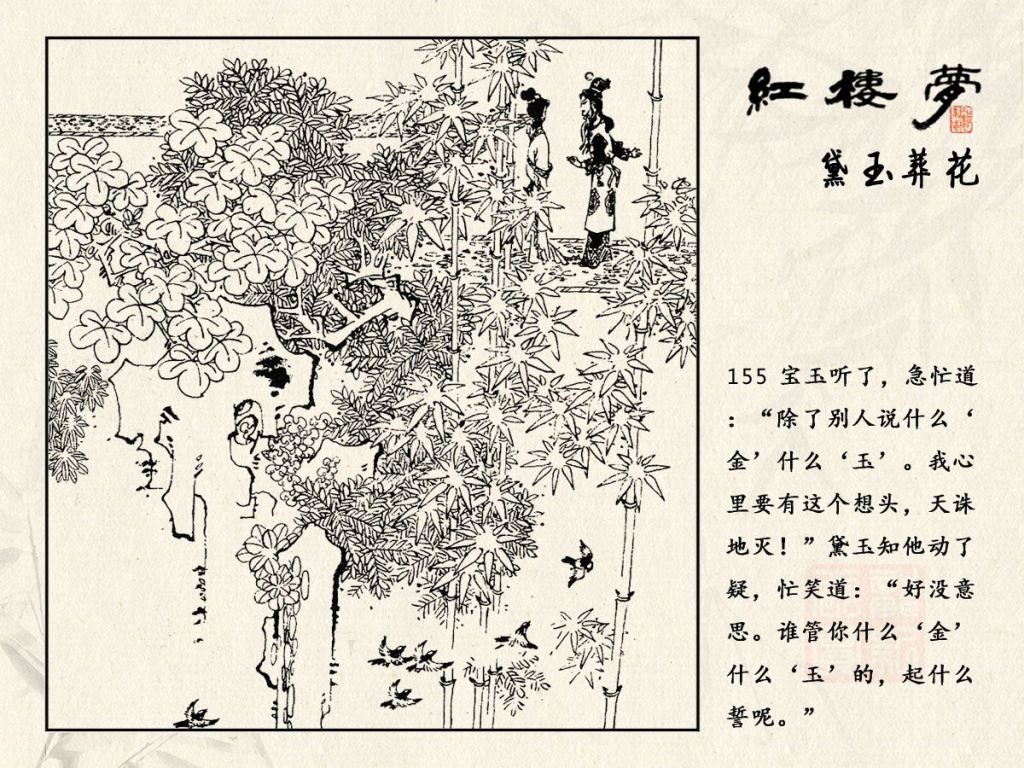 紅樓夢
黛玉葬花
155 宝玉听了，急忙道
：“除了别人说什么‘
金’什么‘玉’。我心
里要有这个想头，天诛
地灭！”黛玉知他动了
疑，忙笑道：“好没意
思。谁管你什么‘金’
什么‘玉’的，起什么
誓呢。”